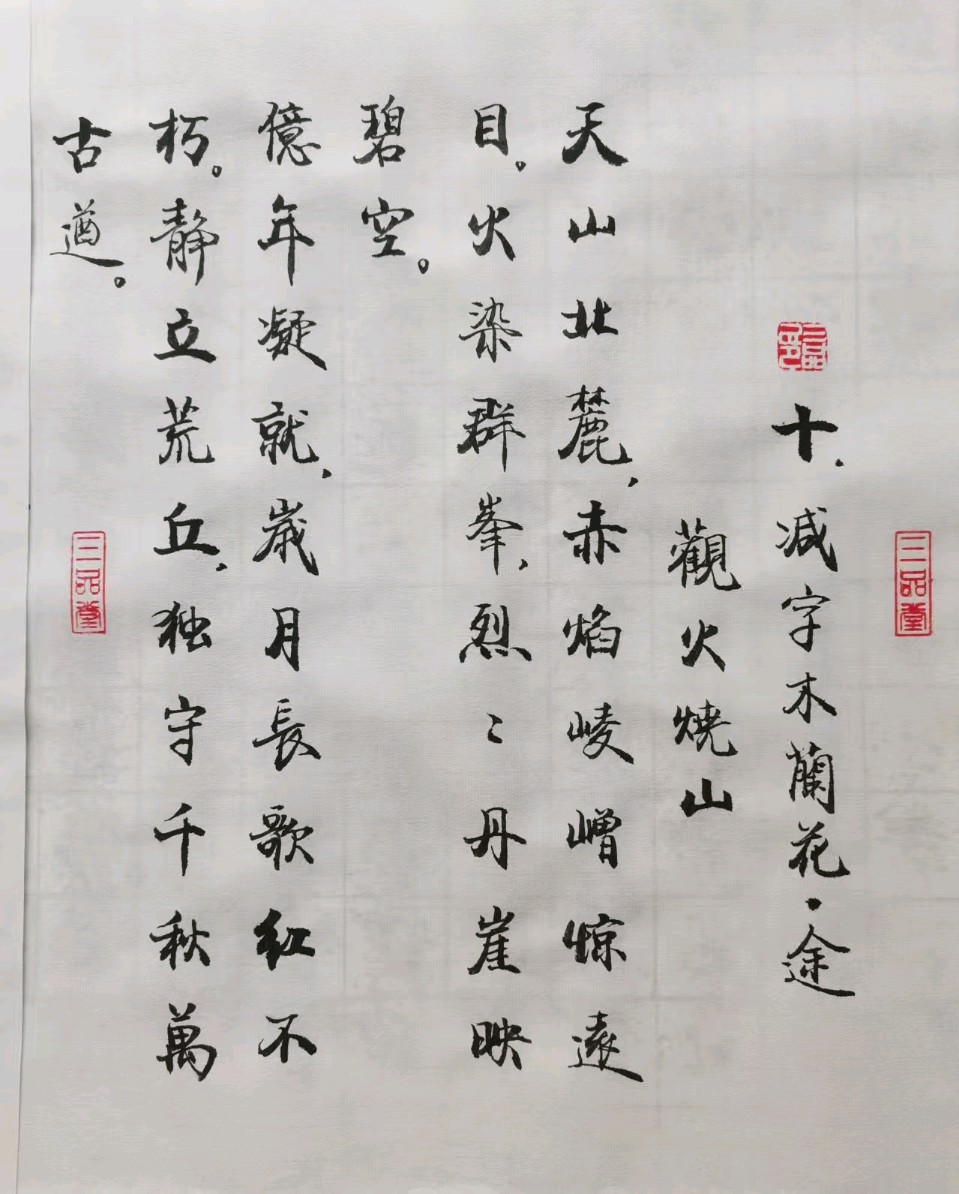 十、减字木蘭花·途
觀火燒山
天山北麓，赤焰崚嶒惊遠
目。火染群峯，烈〻丹崖映
碧空。
億年凝就，歲月長歌紅不
朽。靜立荒丘，独守千秋萬
古遒。
三品堂
三品堂